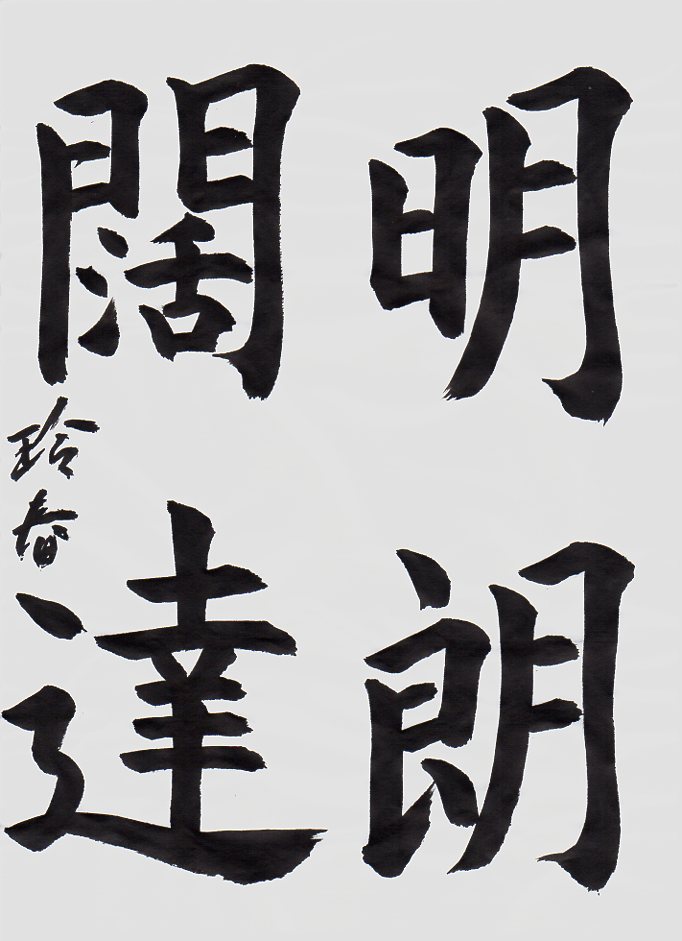 明朗
闊達
玲春